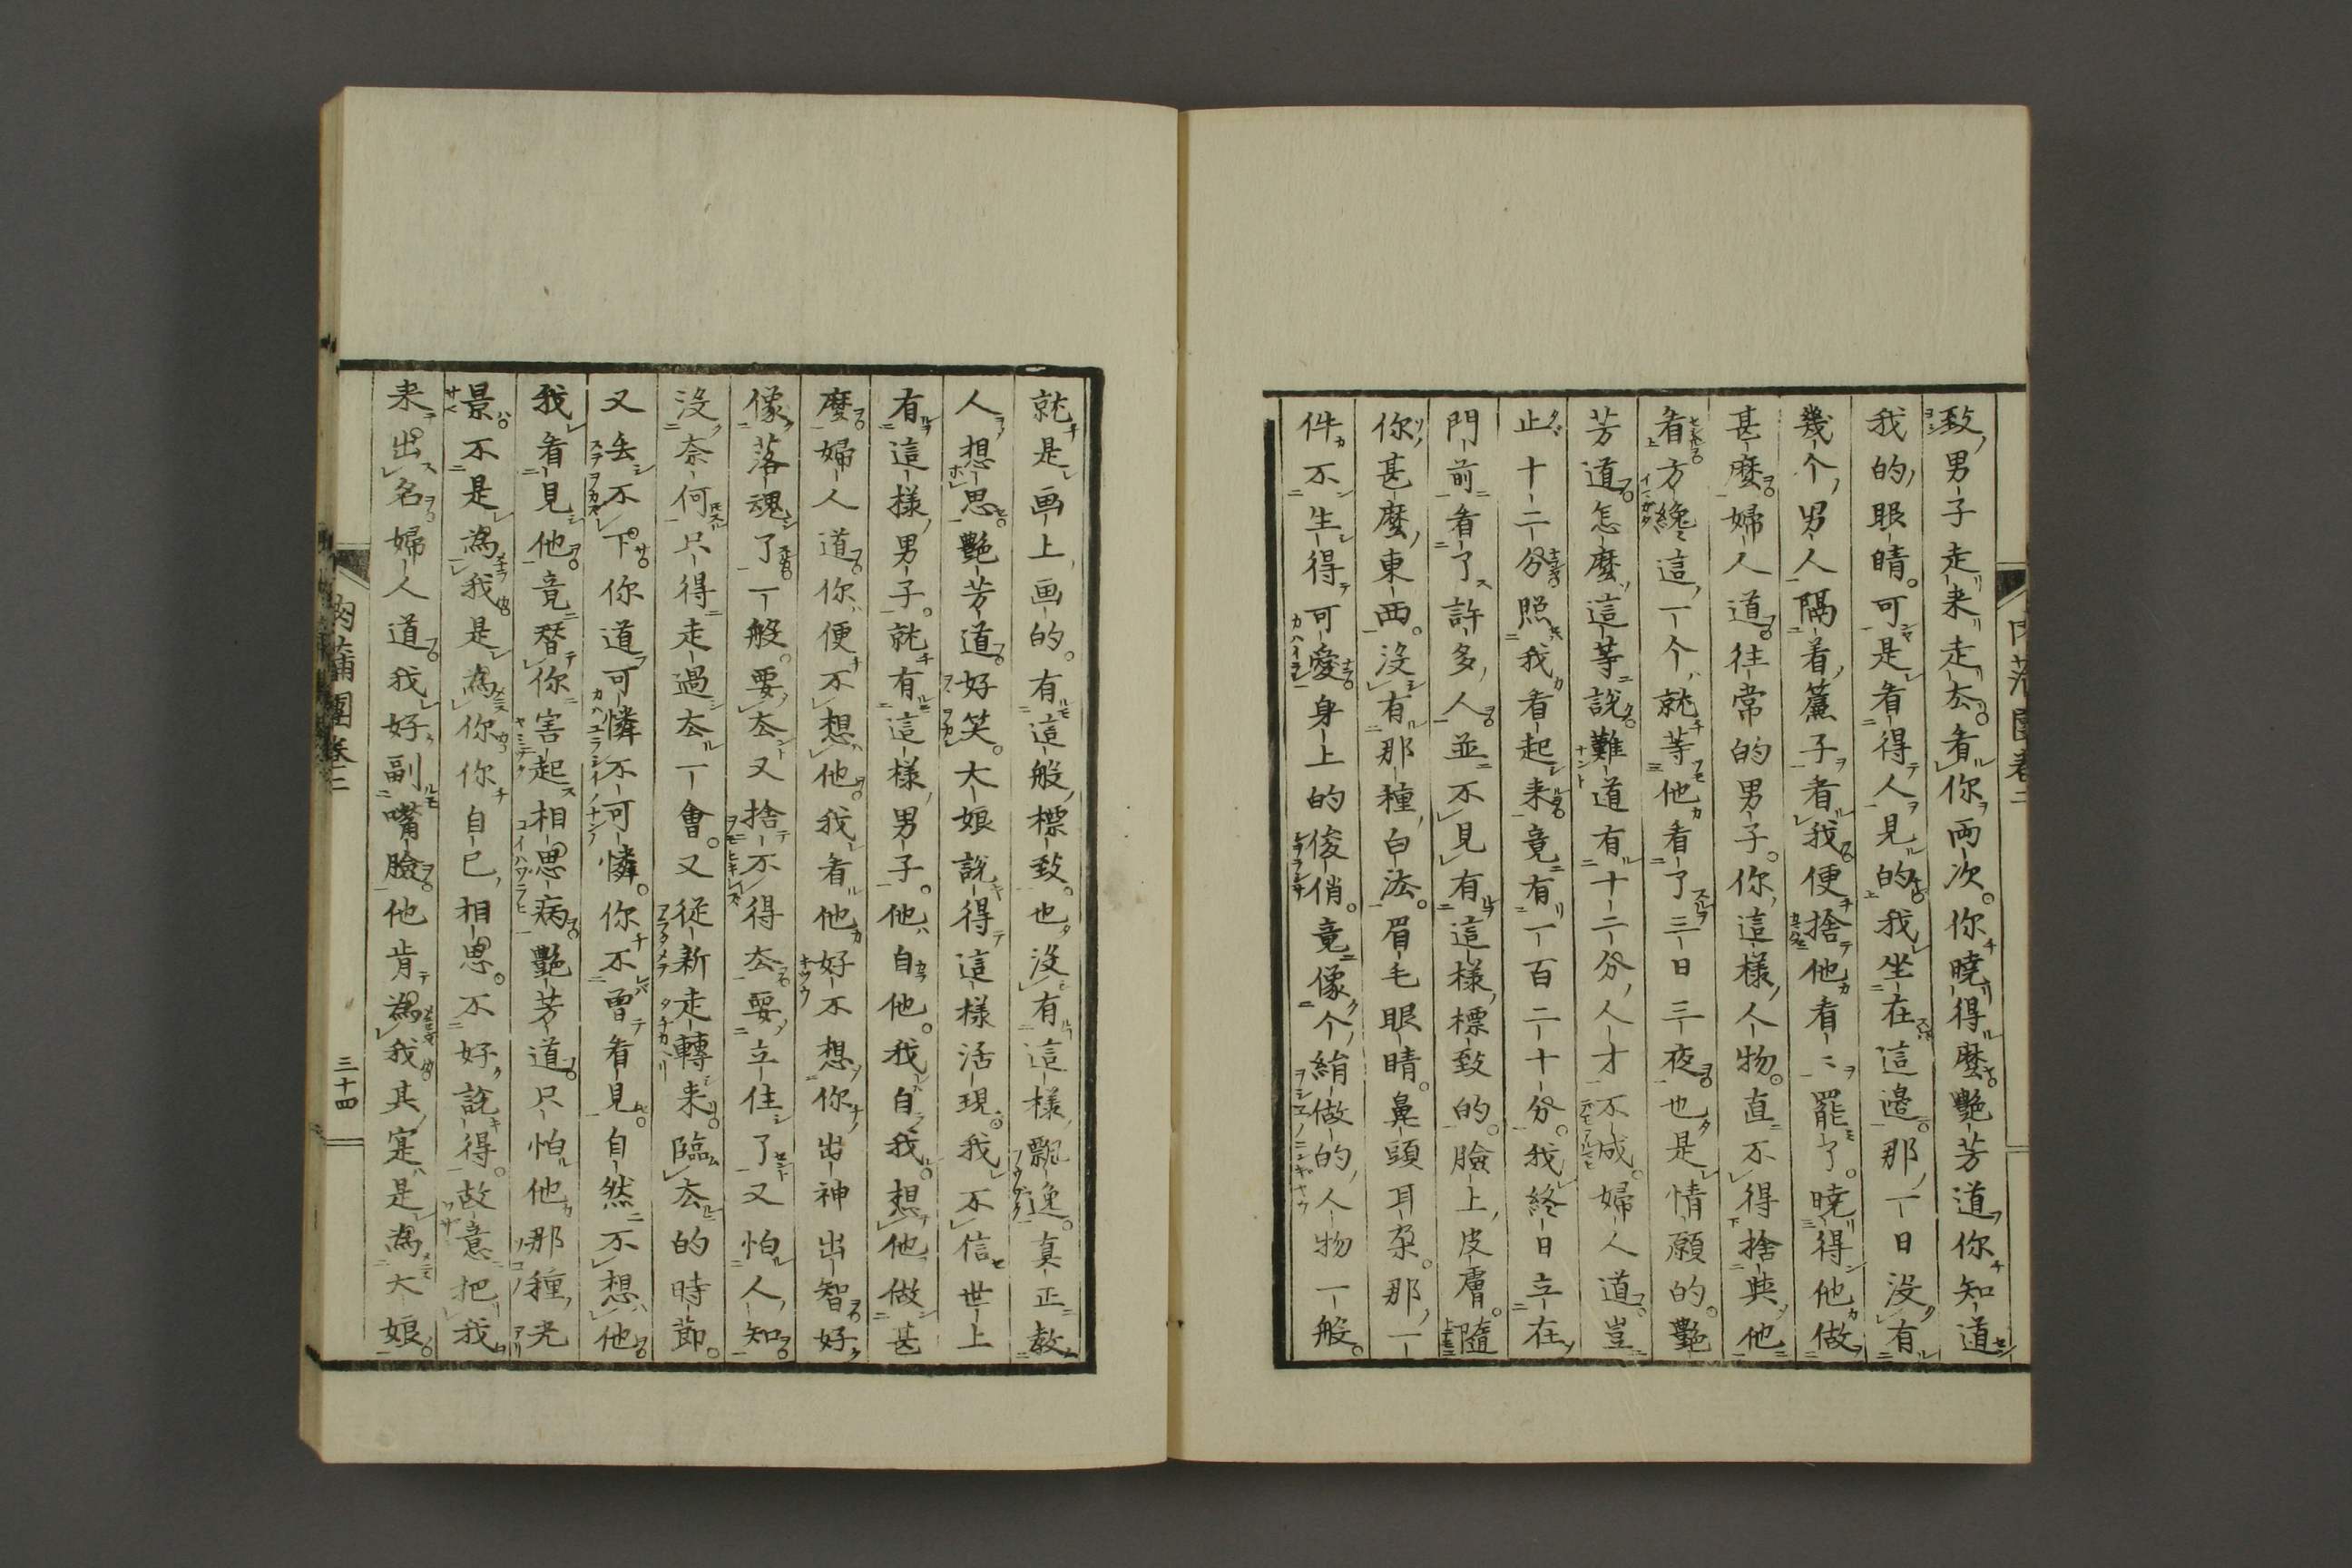 致男子走来走去看你両次你曉得麼艶芳道你知道
我的眼睛可是看得人見的我坐在這邉那一日没有
幾个男人隔着簾子看我便捨他看〻罷了曉得他做
甚麼婦人道徃常的男子你這樣人物直不得捨與他
看方纔這一个就等他看了三日三夜也是情願的艶
芳道怎麼這等說難道有十二分人才不成婦人道豈
止十二分照我看起来竟有一百二十分我終日立在
門前看了許多人並不見有這樣標致的臉上皮膚隨
你甚麼東西没有那種白法眉毛眼睛鼻頭耳朶那一
件不生得可愛身上的俊俏竟像个絹做的人物一般
就是画上画的有這般標致也没有這樣飄逸真正教
人想思艶芳道好笑大娘說得這樣活現我不信世上
有這様男子就有這様男子他自他我自我想他做甚
麼婦人道你便不想他我看他好不想你出神出智好
像落魂了一般要去又捨不得去要立住了又怕人知
没奈何只得走過去一會又従新走轉来臨去的時節
又丢不下你道可憐不可憐你不曾看見自然不想他
我看見他竟替你害起相思病艶芳道只怕他那種光
景不是為我是為你你自己相思不好說得故意把我
来出名婦人道我好副嘴臉他肯為我其寔是為大娘
肉蒲團巻二
三十四